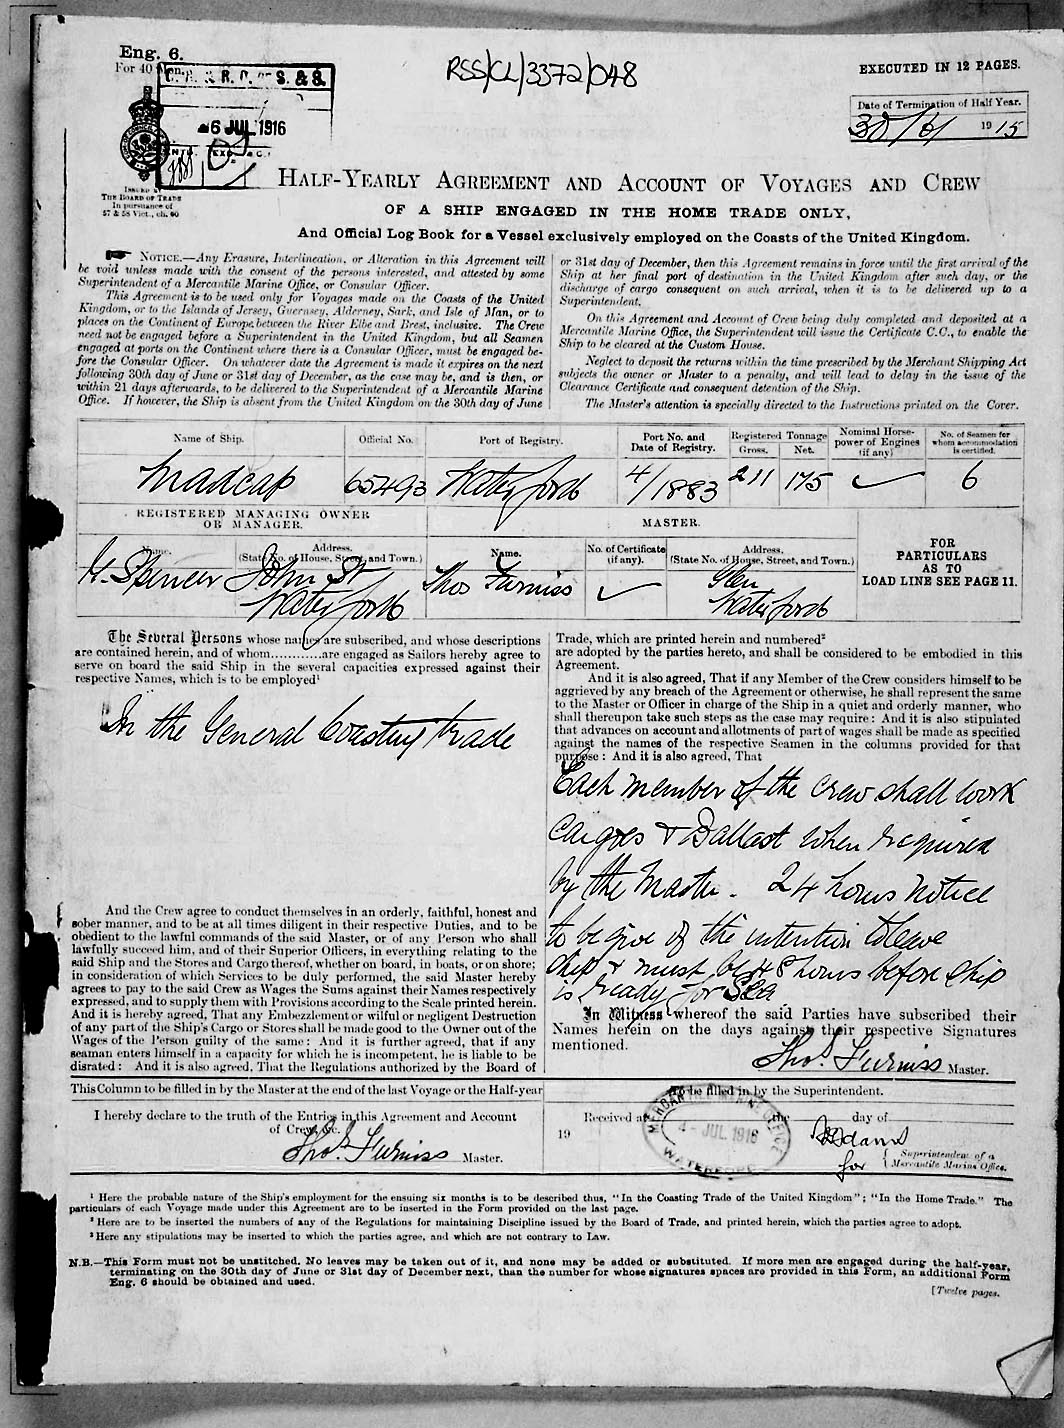 Eng. 6.
For 40 Men.
R. O. S. & S.
6 JUL 1916
RSS/CL/3372/048
EXECUTED IN 12 PAGES.
Date of Termination of Half Year.
30/6/ 1915
ISSUED BY
THE BOARD OF TRADE
In pursuance of
57 & 58 Vict., ch. 60
HALF-YEARLY AGREEMENT AND ACCOUNT OF VOYAGES AND CREW
OF A SHIP ENGAGED IN THE HOME TRADE ONLY,
And Official Log Book for a Vessel exclusively employed on the Coasts of the United Kingdom.
NOTICE.—Any Erasure, Interlineation, or Alteration in this Agreement will
be void unless made with the consent of the persons interested, and attested by some
Superintendent of a Mercantile Marine Office, or Consular Officer.
This Agreement is to be used only for Voyages made on the Coasts of the United
Kingdom, or to the Islands of Jersey, Guernsey, Alderney, Sark, and Isle of Man, or to
places on the Continent of Europe between the River Elbe and Brest, inclusive. The Crew
need not be engaged before a Superintendent in the United Kingdom, but all Seamen
engaged at ports on the Continent where there is a Consular Officer, must be engaged be-
fore the Consular Officer. On whatever date the Agreement is made it expires on the next
following 30th day of June or 31st day of December, as the case may be, and is then, or
within 21 days afterwards, to be delivered to the Superintendent of a Mercantile Marine
Office. If however, the Ship is absent from the United Kingdom on the 30th day of June
or 31st day of December, then this Agreement remains in force until the first arrival of the
Ship at her final port of destination in the United Kingdom after such day, or the
discharge of cargo consequent on such arrival, when it is to be delivered up to a
Superintendent.
On this Agreement and Account of Crew being duly completed and deposited at a
Mercantile Marine Office, the Superintendent will issue the Certificate C.C., to enable the
Ship to be cleared at the Custom House.
Neglect to deposit the returns within the time prescribed by the Merchant Shipping Act
subjects the owner or Master to a penalty, and will lead to delay in the issue of the
Clearance Certificate and consequent detention of the Ship.
The Master's attention is specially directed to the Instructions printed on the Cover.
Name of Ship. Official No. Port of Registry. Port No. and Date of Registry. Registered Tonnage Gross. Net. Nominal Horse-power of Engines (if any) No. of Seamen for whom accommodation is certified.
Madcap 65493 Waterford 4/1883 211 175 6
REGISTERED MANAGING OWNER
OR MANAGER.
MASTER.
Name. Address. (State No. of House, Street, and Town.) Name. No. of Certificate (if any). Address. (State No. of House, Street, and Town.)
H. Spencer John St Waterford Thos Furniss Glen Waterford
FOR
PARTICULARS
AS TO
LOAD LINE SEE PAGE 11.
The Several Persons whose names are subscribed, and whose descriptions
are contained herein, and of whom............are engaged as Sailors hereby agree to
serve on board the said Ship in the several capacities expressed against their
respective Names, which is to be employed¹
In the General Coasting trade
And the Crew agree to conduct themselves in an orderly, faithful, honest and
sober manner, and to be at all times diligent in their respective Duties, and to be
obedient to the lawful commands of the said Master, or of any Person who shall
lawfully succeed him, and of their Superior Officers, in everything relating to the
said Ship and the Stores and Cargo thereof, whether on board, in boats, or on shore;
in consideration of which Services to be duly performed, the said Master hereby
agrees to pay to the said Crew as Wages the Sums against their Names respectively
expressed, and to supply them with Provisions according to the Scale printed herein.
And it is hereby agreed, That any Embezzlement or wilful or negligent Destruction
of any part of the Ship's Cargo or Stores shall be made good to the Owner out of the
Wages of the Person guilty of the same: And it is further agreed, that if any
seaman enters himself in a capacity for which he is incompetent, he is liable to be
disrated: And it is also agreed, That the Regulations authorized by the Board of
Trade, which are printed herein and numbered²
are adopted by the parties hereto, and shall be considered to be embodied in this
Agreement.
And it is also agreed, That if any Member of the Crew considers himself to be
aggrieved by any breach of the Agreement or otherwise, he shall represent the same
to the Master or Officer in charge of the Ship in a quiet and orderly manner, who
shall thereupon take such steps as the case may require: And it is also stipulated
that advances on account and allotments of part of wages shall be made as specified
against the names of the respective Seamen in the columns provided for that
purpose: And it is also agreed, That
Each member of the crew shall work
cargoes & Ballast when required
by the Master. 24 hours notice
to be give of the intention to leave
ship & must be 48 hours before ship
is ready for Sea
In Witness whereof the said Parties have subscribed their
Names herein on the days against their respective Signatures
mentioned.
Thos. Furniss Master.
This Column to be filled in by the Master at the end of the last Voyage or the Half-year
I hereby declare to the truth of the Entries in this Agreement and Account
of Crew, &c.
Thos. Furniss Master.
To be filled in by the Superintendent.
Received at the day of
19
MERCANTILE MARINE OFFICE
4 - JUL 1916
WATERFORD
Adams
for
Superintendent of a
Mercantile Marine Office.
¹ Here the probable nature of the Ship's employment for the ensuing six months is to be described thus, "In the Coasting Trade of the United Kingdom"; "In the Home Trade." The
particulars of each Voyage made under this Agreement are to be inserted in the Form provided on the last page.
² Here are to be inserted the numbers of any of the Regulations for maintaining Discipline issued by the Board of Trade, and printed herein, which the parties agree to adopt.
³ Here any stipulations may be inserted to which the parties agree, and which are not contrary to Law.
N.B.—This Form must not be unstitched. No leaves may be taken out of it, and none may be added or substituted. If more men are engaged during the half-year,
terminating on the 30th day of June or 31st day of December next, than the number for whose signatures spaces are provided in this Form, an additional Form
Eng. 6 should be obtained and used.
[Twelve pages.